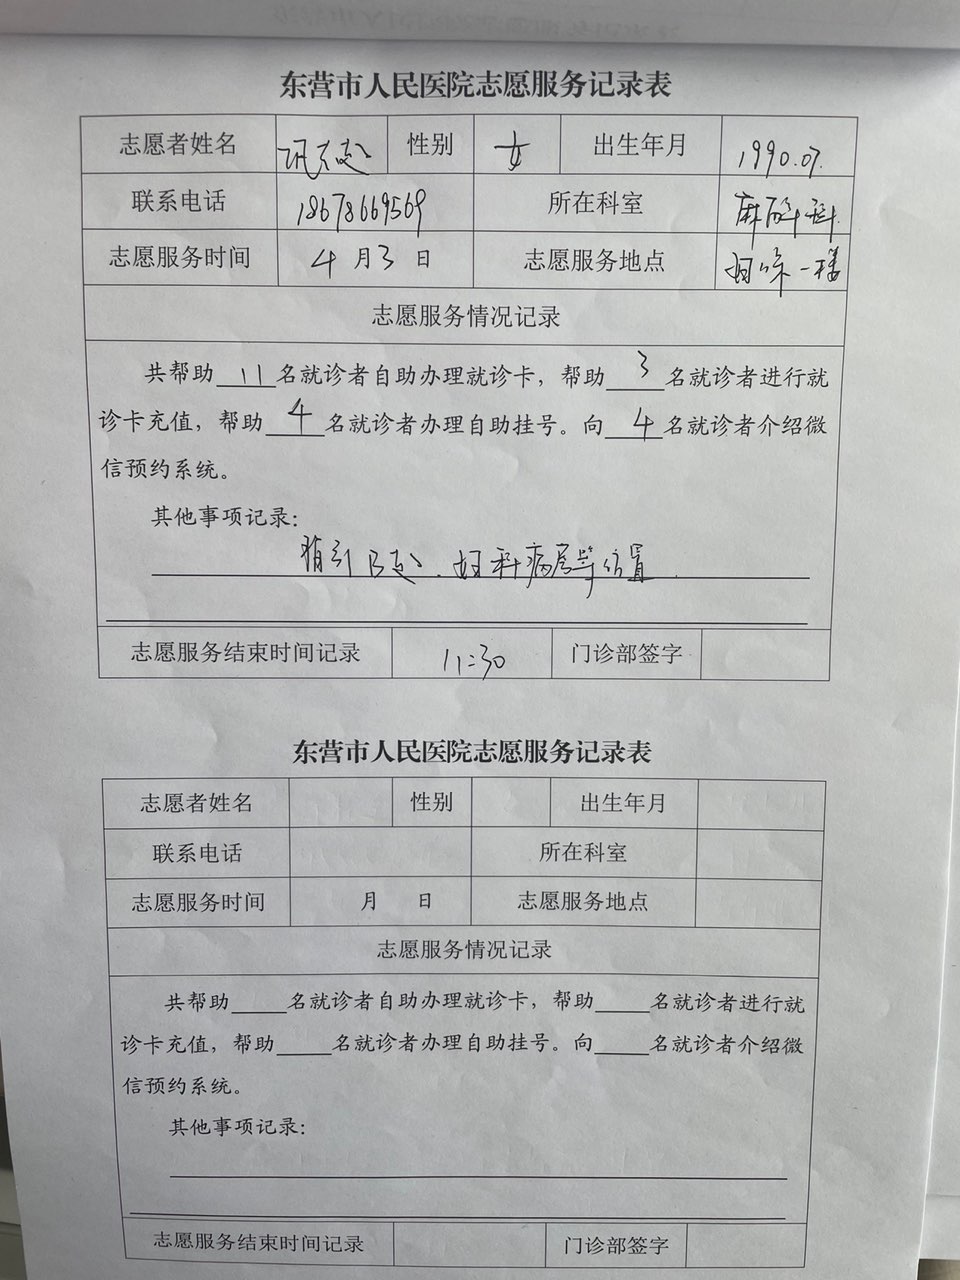 东营市人民医院志愿服务记录表
志愿者姓名 性别 女 出生年月 1990.07.
联系电话 18678669569 所在科室 麻醉科
志愿服务时间 4月3日 志愿服务地点 一楼
志愿服务情况记录
共帮助11名就诊者自助办理就诊卡，帮助3名就诊者进行就
诊卡充值，帮助4名就诊者办理自助挂号。向4名就诊者介绍微
信预约系统。
其他事项记录：
指引B超、妇科病房等位置.
志愿服务结束时间记录 11:30 门诊部签字
东营市人民医院志愿服务记录表
志愿者姓名 性别 出生年月
联系电话 所在科室
志愿服务时间 月 日 志愿服务地点
志愿服务情况记录
共帮助____名就诊者自助办理就诊卡，帮助____名就诊者进行就
诊卡充值，帮助____名就诊者办理自助挂号。向____名就诊者介绍微
信预约系统。
其他事项记录：
志愿服务结束时间记录 门诊部签字